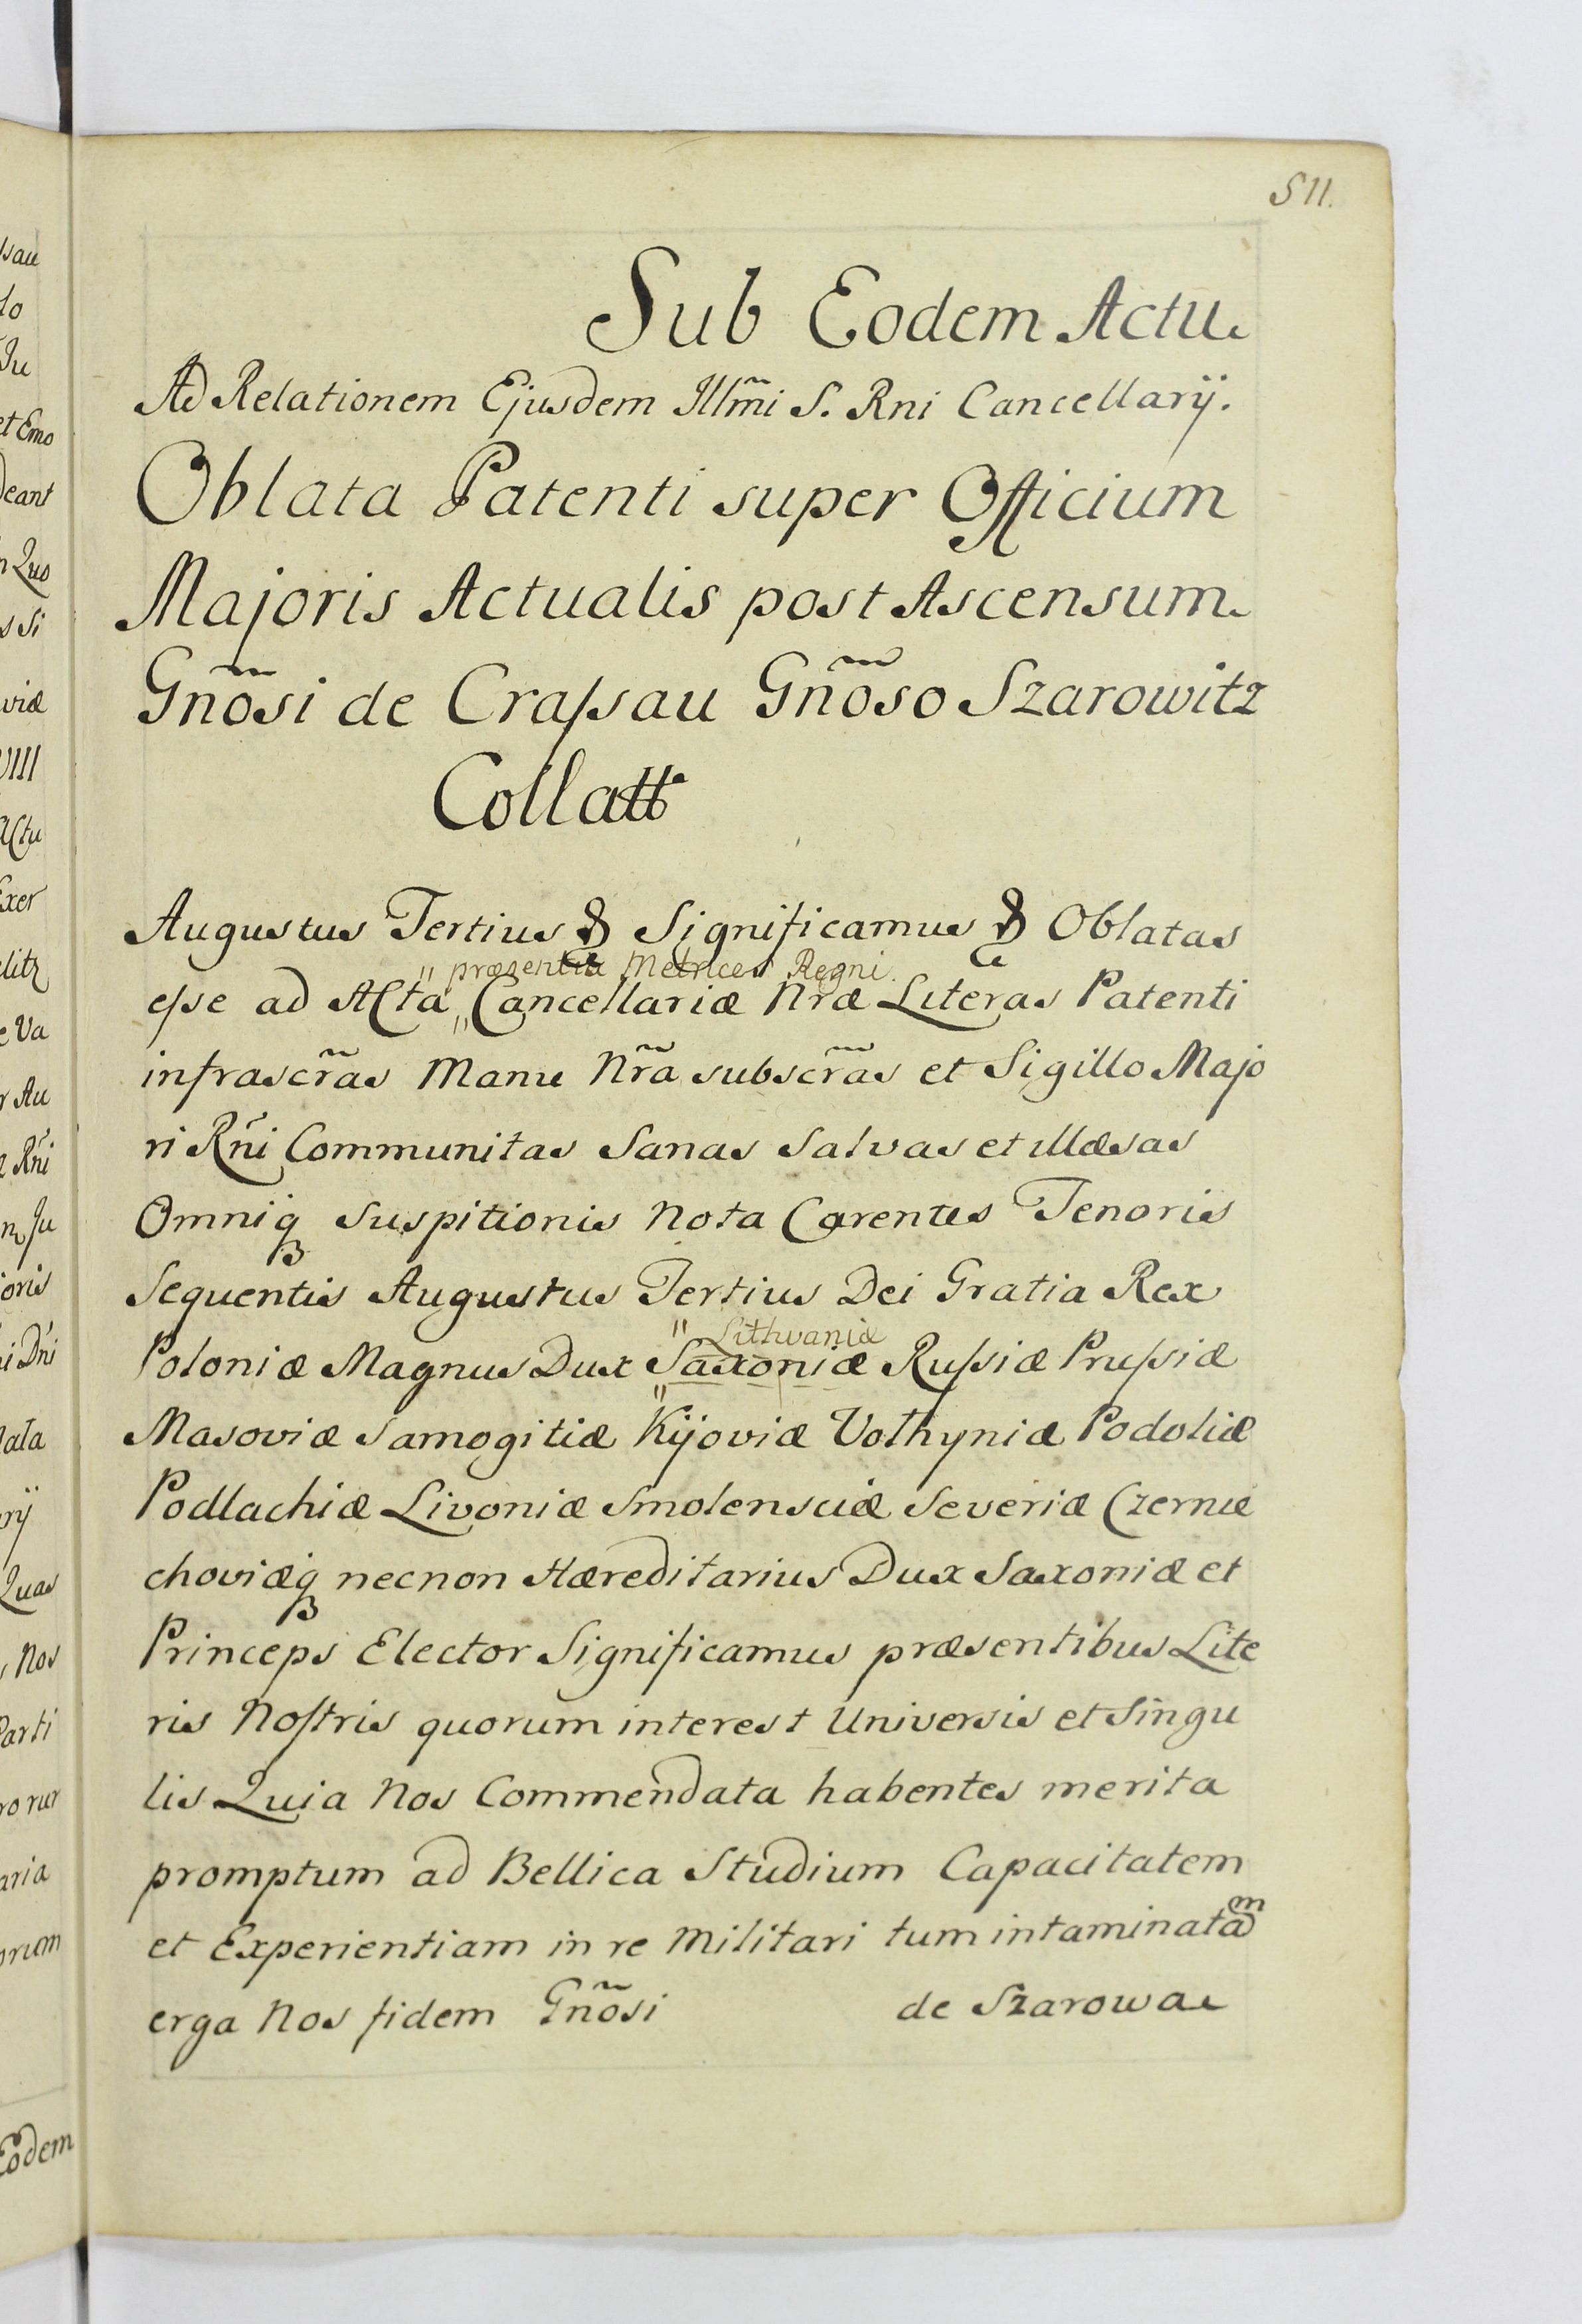 511.
Sub Eodem Actu
Ad Relationem Ejusdem Illm̃i S. Rni Cancellarij.
Oblata Patenti super Officium
Majoris Actualis post Ascensum
Gñosi de Craſsau Gñoso Szarowitz
Collatt
Augustus Tertius & Significamus & Oblatas
præsentia Metrices Regni
eſse ad Acta „ Cancellariæ Nræ Literas Patenti
infrascr̃as Manu Nr̃a subscr̃as et Sigillo Majo
ri Rñi Communitas Sanas Salvas et illæsas
Omniq̃ Suspitionis Nota Carentes Tenoris
Sequentis Augustus Tertius Dei Gratia Rex
" Lithvaniæ
Poloniæ Magnus Dux Saxoniæ Ruſsiæ Pruſsiæ
Masoviæ Samogitiæ Kijoviæ Volhyniæ Podoliæ
Podlachiæ Livoniæ Smolensciæ Severiæ Czernie
choviæq̃ necnon Hæreditarius Dux Saxoniæ et
Princeps Elector Significamus præsentibus Lite
ris Noſtris quorum interest Universis et Singu
lis Quia Nos Commendata habentes merita
promptum ad Bellica Studium Capacitatem
et Experientiam in re Militari tum intaminatam
erga Nos fidem Gñosi de Szarowa
sau
lo
et Emo
deant
Quo
viæ
VIII
Actu
Exer
litz
e Va
r Au
Rñi
oris
i Dñi
lata
rij
Quas
Nos
Parti
aria
orum
Eodem